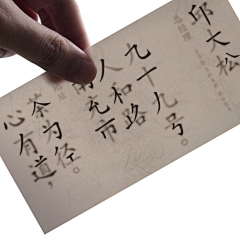 心有道，
茶为径。
南充市
人和路
九十九号。
邱大松